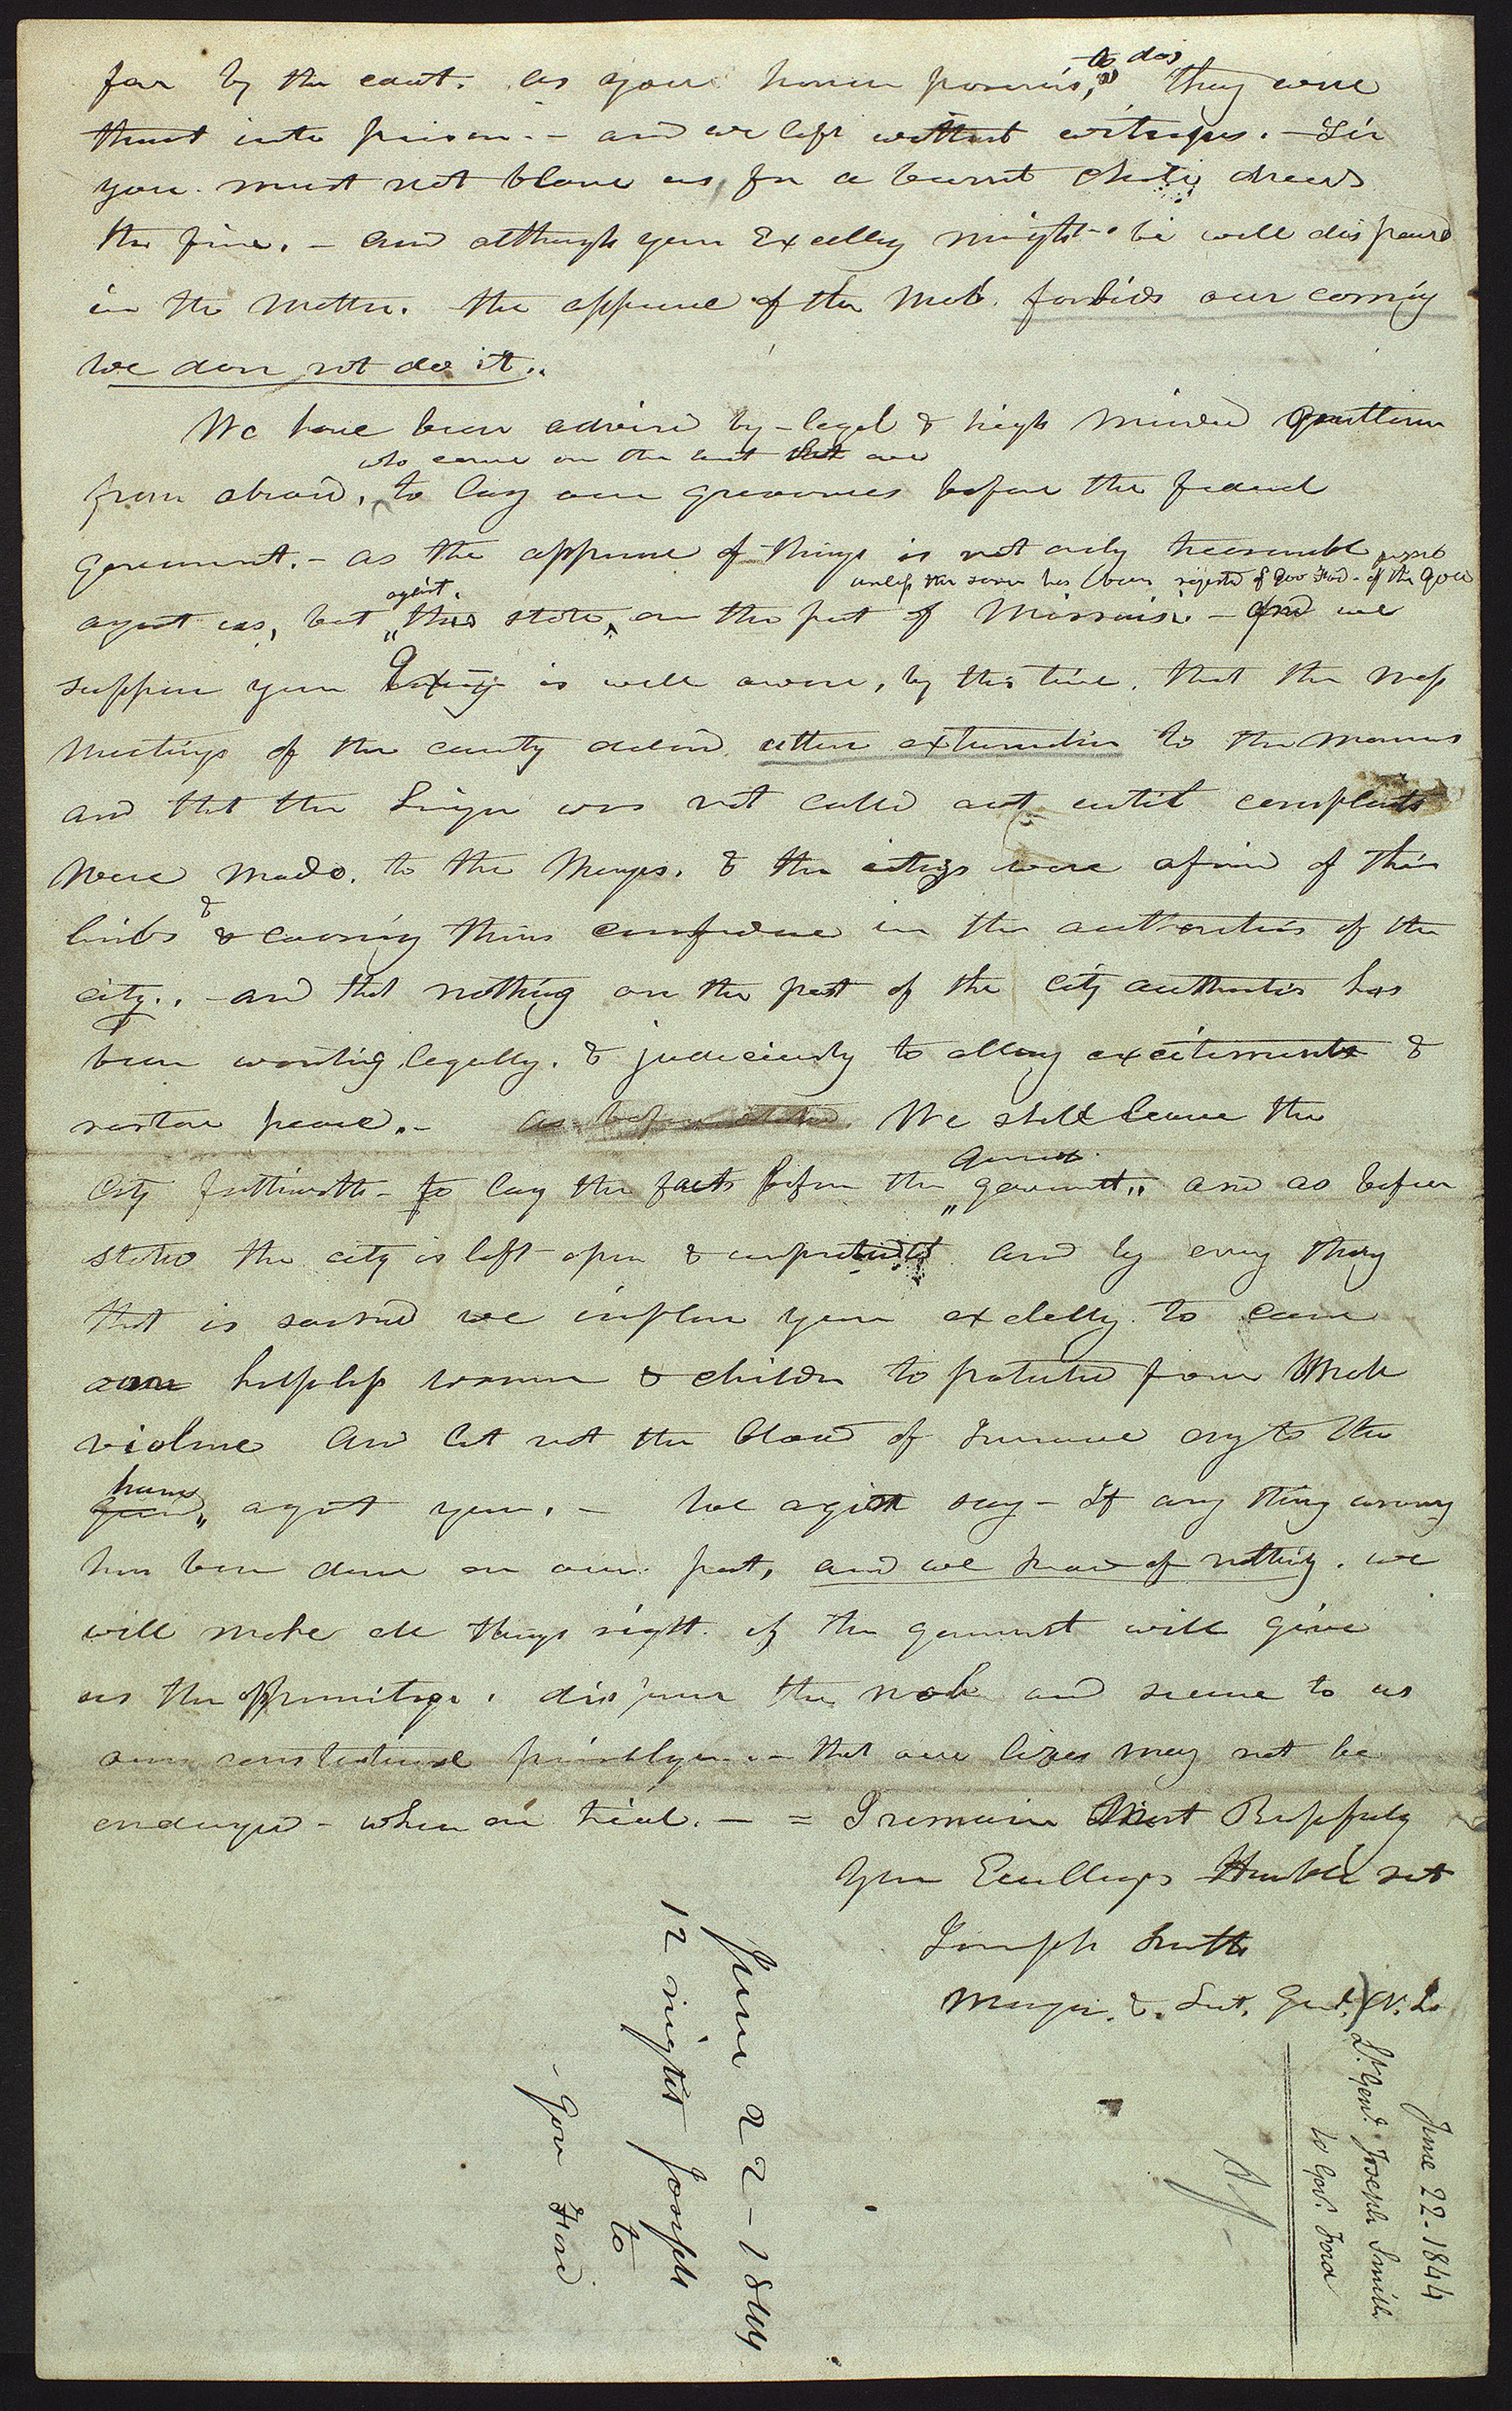 far by the court. as your honor proposes, to do, they were
thrust into prison. - and we left without witnesses. - Sir
you must not blame us, for a burnt child dreads
the fire. - and although your Excelley might be well disposed
in the matter. the appearance of the mob. forbids our coming
we dare not do it..
We have been advised by - legal & high minded gentlemen
who came on the that are
from abroad, to lay our grievances before the federal
government. - as the appearance of things is not only treasonable
unless the same has been rejected of Gov Ford - of the Gov
against.
agast us, but this state, on the part of Missouri. - And we
suppose your is well aware, by this time, that the mass
meetings of the county declared utter extermination to the Mormons
and that the Legion was not called out until complaints
were made. to the Mayor. & the citizens were afraid of their
&
limbs & loosing their confidence in the authorities of the
city.. - and that nothing on the part of the city authorities has
been wanting legally. & judiciously to allay excitements &
restore peace. - as before stated. We shall leave the
city forthwith - to lay the facts before the government.. and as before
stated the city is left open & unprotected. and by every thing
that is sacred we implore your excelley to cause
our helpless women & children to be protected from mob
violence and let not the blood of Innocence cry to
heaven agast you. - We again say - If any thing wrong
has been done on our part, and we know of nothing. we
will make all things right. if the government will give
us the oppertunity. disperse the mob and secure to us
our constitutional priveleges. - that our lives may not be
endangered - when on trial. - = I remain Most Respfuly
your Excellnys Humble svt
Joseph Smith
Mayor. & Lieut. Genl. N. L.
June 22 - 1844
12 night Joseph
to
- Gov Ford
June 22 - 1844
Lt. Genl. Joseph Smith
to Gov. Ford